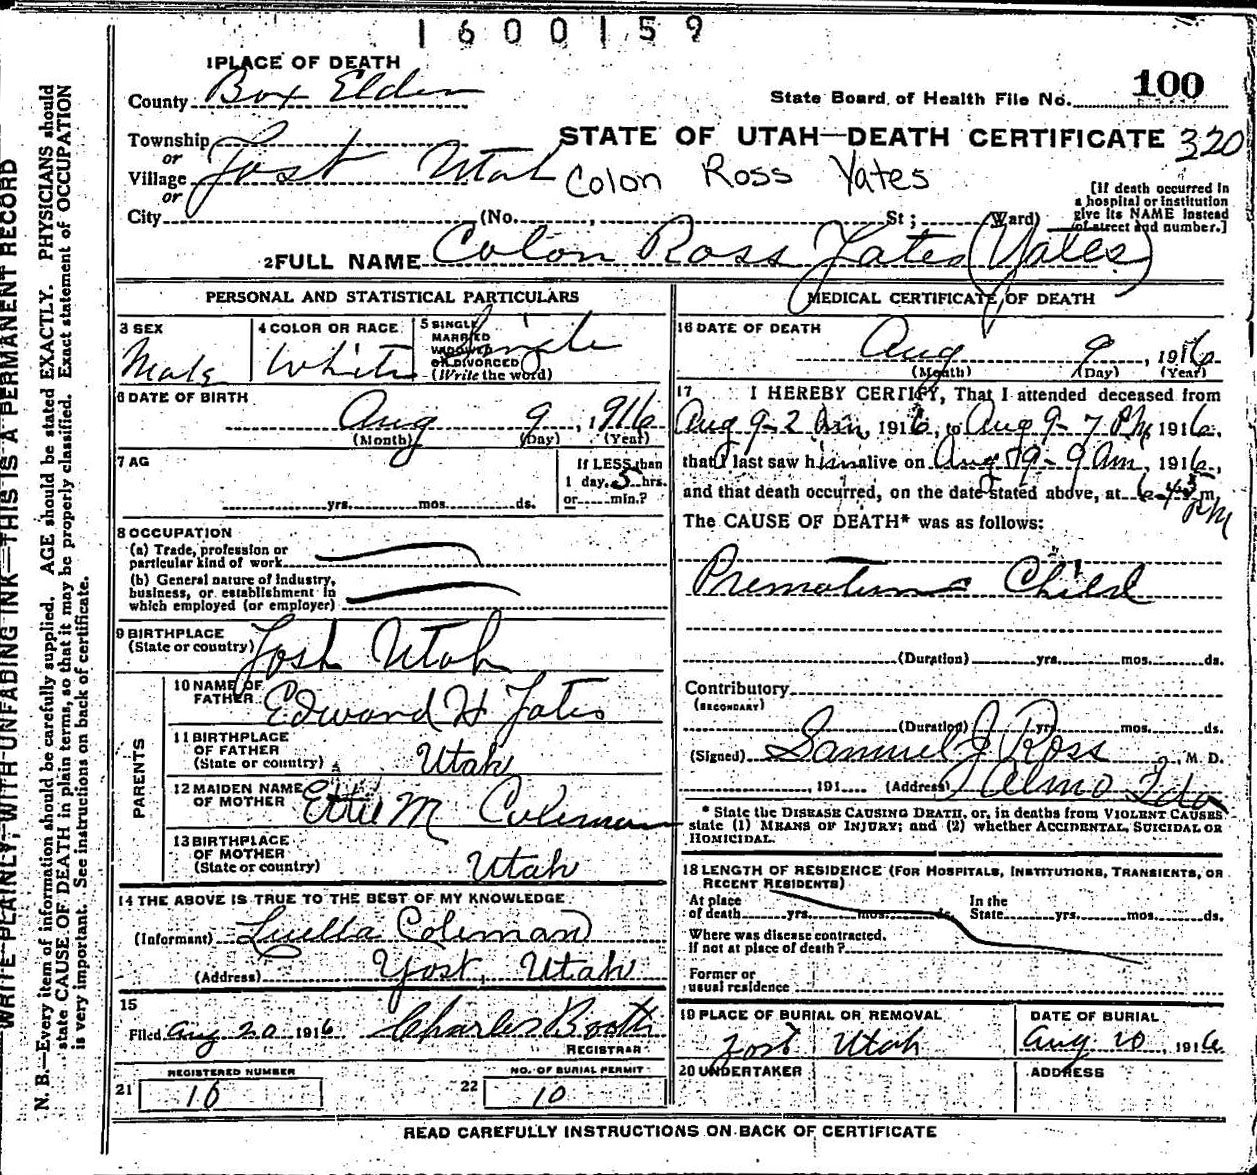 1600159
1 PLACE OF DEATH
County Box Elder
State Board of Health File No. 100
STATE OF UTAH—DEATH CERTIFICATE 320
Township
or
Village Yost Utah
or
Colon Ross Yates
[If death occurred in
a hospital or institution
give its NAME instead
of street and number.]
City (No. , St; Ward)
2 FULL NAME Colon Ross Yates (Yates)
PERSONAL AND STATISTICAL PARTICULARS
3 SEX Male
4 COLOR OR RACE White
5 SINGLE
MARRIED
WIDOWED
OR DIVORCED
(Write the word) Single
6 DATE OF BIRTH
Aug 9, 1916
(Month) (Day) (Year)
7 AG
yrs. mos. ds.
If LESS than
1 day, 5 hrs.
or min.?
8 OCCUPATION
(a) Trade, profession or
particular kind of work
(b) General nature of industry,
business, or establishment in
which employed (or employer)
9 BIRTHPLACE
(State or country) Yost Utah
PARENTS
10 NAME OF
FATHER Edward H Yates
11 BIRTHPLACE
OF FATHER
(State or country) Utah
12 MAIDEN NAME
OF MOTHER Ettie M Coleman
13 BIRTHPLACE
OF MOTHER
(State or country) Utah
14 THE ABOVE IS TRUE TO THE BEST OF MY KNOWLEDGE
(Informant) Luella Coleman
(Address) Yost, Utah
15
Filed Aug 20 1916 Charles Booth
REGISTRAR
21 REGISTERED NUMBER
16
22 NO. OF BURIAL PERMIT
10
MEDICAL CERTIFICATE OF DEATH
16 DATE OF DEATH
Aug 9, 1916
(Month) (Day) (Year)
17 I HEREBY CERTIFY, That I attended deceased from
Aug 9 - 2 1916, to Aug 9 - 7 PM, 1916,
that I last saw him alive on Aug 9 - 9 Am, 1916,
and that death occurred, on the date stated above, at m.
PM
The CAUSE OF DEATH* was as follows:
Premature Child
(Duration) yrs. mos. ds.
Contributory
(SECONDARY)
(Duration) yrs. mos. ds.
(Signed) Samuel J Ross, M. D.
, 191 (Address) Almo Ida
* State the DISEASE CAUSING DEATH, or, in deaths from VIOLENT CAUSES
state (1) MEANS OF INJURY; and (2) whether ACCIDENTAL, SUICIDAL OR
HOMICIDAL.
18 LENGTH OF RESIDENCE (FOR HOSPITALS, INSTITUTIONS, TRANSIENTS, OR
RECENT RESIDENTS)
At place
of death yrs. mos. ds.
In the
State yrs. mos. ds.
Where was disease contracted,
if not at place of death?
Former or
usual residence
19 PLACE OF BURIAL OR REMOVAL
Yost Utah
DATE OF BURIAL
Aug 10, 1916
20 UNDERTAKER
ADDRESS
READ CAREFULLY INSTRUCTIONS ON BACK OF CERTIFICATE
WRITE PLAINLY, WITH UNFADING INK—THIS IS A PERMANENT RECORD
N. B.—Every item of information should be carefully supplied. AGE should be stated EXACTLY. PHYSICIANS should
state CAUSE OF DEATH in plain terms, so that it may be properly classified. Exact statement of OCCUPATION
is very important. See instructions on back of certificate.